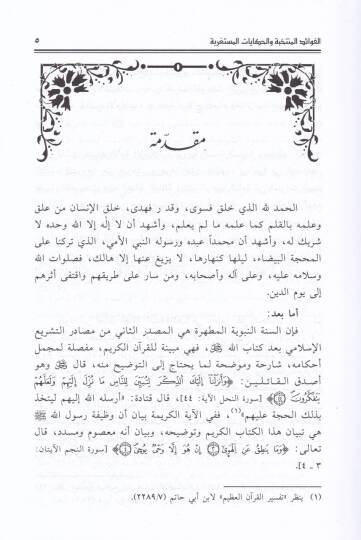 الفوائد المنتخبة والحكايات المستغربة ٥
مقدّمة
الحمد لله الذي خلق فسوى، وقدر فهدى، خلق الإنسان من علق
وعلمه بالقلم كما علمه ما لم يعلم، وأشهد أن لا إله إلا الله وحده لا
شريك له، وأشهد أن محمداً عبده ورسوله النبي الأمي، الذي تركنا على
المحجة البيضاء، ليلها كنهارها، لا يزيغ عنها إلا هالك، فصلوات الله
وسلامه عليه، وعلى آله وأصحابه، ومن سار على طريقهم واقتفى أثرهم
إلى يوم الدين.
أما بعد:
فإن السنة النبوية المطهرة هي المصدر الثاني من مصادر التشريع
الإسلامي بعد كتاب الله ﷻ، فهي مبينة للقرآن الكريم، مفصلة لمجمل
أحكامه، شارحة وموضحة لما يحتاج إلى التوضيح منه، قال ﷻ وهو
أصدق القائلين: ﴿وَأَنزَلْنَا إِلَيْكَ الذِّكْرَ لِتُبَيِّنَ لِلنَّاسِ مَا نُزِّلَ إِلَيْهِمْ وَلَعَلَّهُمْ
يَتَفَكَّرُونَ﴾ [سورة النحل الآية: ٤٤]، قال قتادة: «أرسله الله إليهم ليتخذ
بذلك الحجة عليهم»(١)، ففي الآية الكريمة بيان أن وظيفة رسول الله ﷺ
هي تبيان هذا الكتاب الكريم وتوضيحه، وبيان أنه معصوم ومسدد، قال
تعالى: ﴿وَمَا يَنطِقُ عَنِ الْهَوَىٰ ۝ إِنْ هُوَ إِلَّا وَحْيٌ يُوحَىٰ﴾ [سورة النجم الآيتان:
٣ ـ ٤].
(١) ينظر «تفسير القرآن العظيم» لابن أبي حاتم (٢٢٨٩/٧).